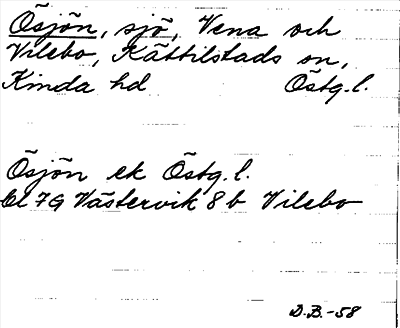 Ösjön, sjö, Vena och
Vilebo, Kättilstads sn,
Kinda hd Östg.l.
Ösjön ek Östg.l.
bl 7G Västervik 8b Vilebo
D.B.-58